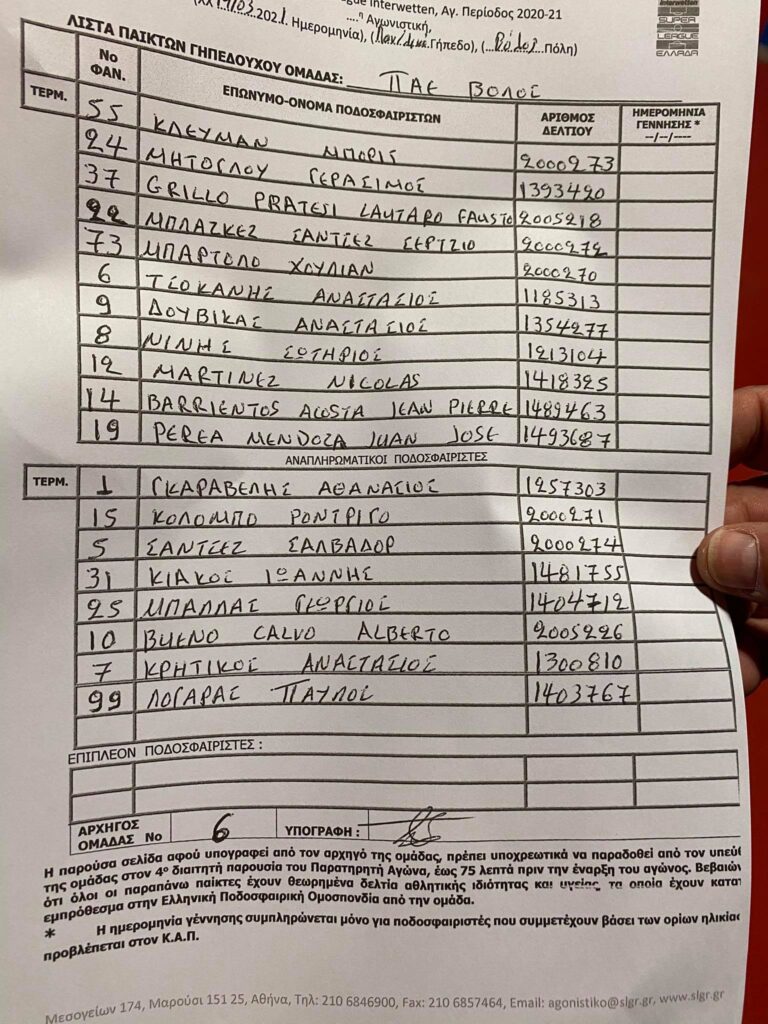 League Interwetten, Αγ. Περίοδος 2020-21
interwetten SUPER LEAGUE ΕΛΛΑΔΑ
....η Αγωνιστική,
/03.202.1. Ημερομηνία), (Γήπεδο), (...Πόλη)
ΛΙΣΤΑ ΠΑΙΚΤΩΝ ΓΗΠΕΔΟΥΧΟΥ ΟΜΑΔΑΣ: ΠΑΕ ΒΟΛΟΣ
ΤΕΡΜ. No ΦΑΝ. ΕΠΩΝΥΜΟ-ΟΝΟΜΑ ΠΟΔΟΣΦΑΙΡΙΣΤΩΝ ΑΡΙΘΜΟΣ ΔΕΛΤΙΟΥ ΗΜΕΡΟΜΗΝΙΑ ΓΕΝΝΗΣΗΣ * --/--/----
55 ΚΛΕΥΜΑΝ ΜΠΟΡΙΣ 2000273
24 ΜΗΤΟΓΛΟΥ ΓΕΡΑΣΙΜΟΣ 1393420
37 GRILLO PRATESI LAUTARO FAUSTO 2005218
22 ΜΠΛΑΣΚΕΖ ΣΑΝΤΣΕΖ ΣΕΡΤΖΙΟ 2000272
73 ΜΠΑΡΤΟΛΟ ΧΟΥΛΙΑΝ 2000270
6 ΤΣΟΚΑΝΗΣ ΑΝΑΣΤΑΣΙΟΣ 1185313
9 ΔΟΥΒΙΚΑΣ ΑΝΑΣΤΑΣΙΟΣ 1354277
8 ΝΙΝΗΣ ΣΩΤΗΡΙΟΣ 1213104
12 MARTINEZ NICOLAS 1418325
14 BARRIENTOS ACOSTA JEAN PIERRE 1489463
19 PEREA MENDOZA JUAN JOSE 1493687
ΑΝΑΠΛΗΡΩΜΑΤΙΚΟΙ ΠΟΔΟΣΦΑΙΡΙΣΤΕΣ
ΤΕΡΜ. 1 ΓΚΑΡΑΒΕΛΗΣ ΑΘΑΝΑΣΙΟΣ 1257303
15 ΚΟΛΟΜΠΟ ΡΟΝΤΡΙΓΟ 2000271
5 ΣΑΝΤΣΕΖ ΣΑΛΒΑΔΟΡ 2000274
31 ΚΙΑΚΟΣ ΙΩΑΝΝΗΣ 1481755
25 ΜΠΑΛΛΑΣ ΓΕΩΡΓΙΟΣ 1404712
10 BUENO CALVO ALBERTO 2005226
7 ΚΡΗΤΙΚΟΣ ΑΝΑΣΤΑΣΙΟΣ 1300810
99 ΛΟΓΑΡΑΣ ΠΑΥΛΟΣ 1403767
ΕΠΙΠΛΕΟΝ ΠΟΔΟΣΦΑΙΡΙΣΤΕΣ :
ΑΡΧΗΓΟΣ ΟΜΑΔΑΣ No 6 ΥΠΟΓΡΑΦΗ :
Η παρούσα σελίδα αφού υπογραφεί από τον αρχηγό της ομάδας, πρέπει υποχρεωτικά να παραδοθεί από τον υπεύθ
της ομάδας στον 4ο διαιτητή παρουσία του Παρατηρητή Αγώνα, έως 75 λεπτά πριν την έναρξη του αγώνος. Βεβαιών
ότι όλοι οι παραπάνω παίκτες έχουν θεωρημένα δελτία αθλητικής ιδιότητας και υγείας, τα οποία έχουν κατατ
εμπρόθεσμα στην Ελληνική Ποδοσφαιρική Ομοσπονδία από την ομάδα.
* Η ημερομηνία γέννησης συμπληρώνεται μόνο για ποδοσφαιριστές που συμμετέχουν βάσει των ορίων ηλικίας
προβλέπεται στον Κ.Α.Π.
Μεσογείων 174, Μαρούσι 151 25, Αθήνα, Τηλ: 210 6846900, Fax: 210 6857464, Email: agonistiko@slgr.gr, www.slgr.gr